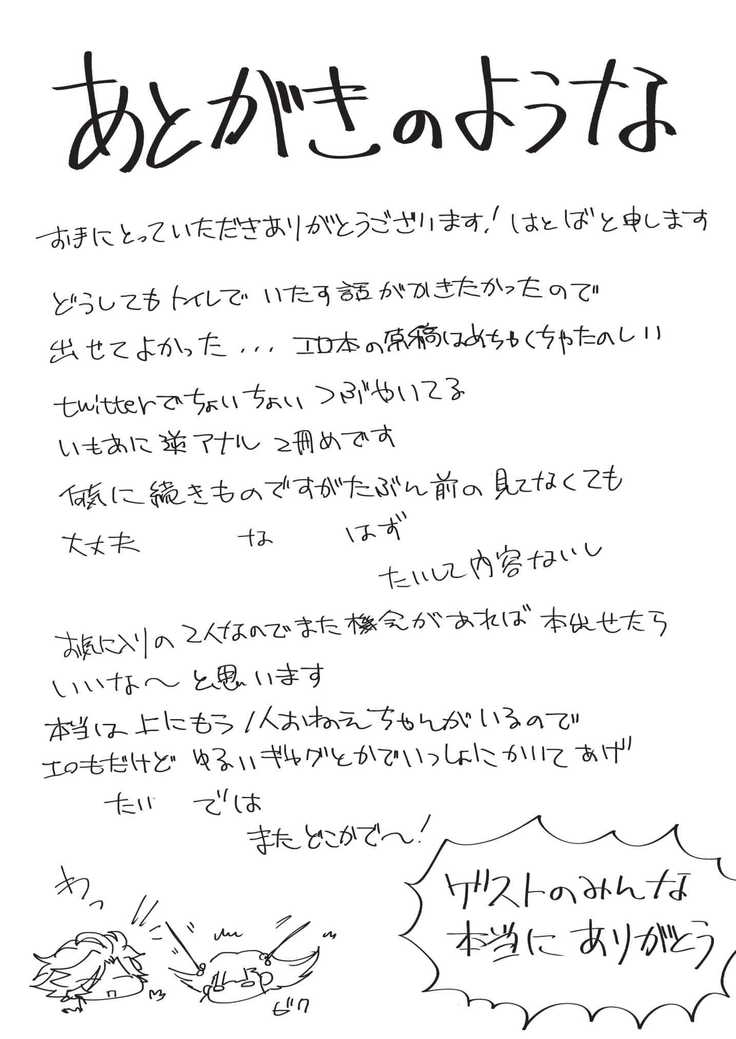 あとがきのような
お手にとっていただきありがとうございます! はとばと申します
どうしてもトイレで いたす話がかきたかったので
出せてよかった... エロ本の原稿はめちゃくちゃたのしい
twitterでちょいちょい つぶやいてる
いもあに逆アナル 2冊めです
何気に続きものですがたぶん前の見てなくても
大丈夫 な はず
たいして内容ないし
お気に入りの2人なのでまた機会があれば本出せたら
いいな〜と思います
本当は上にもう1人おねえちゃんがいるので
エロもだけど ゆるいギャグとかでいっしょにかいてあげ
たい では
またどこかで〜!
わっ
ビク
ゲストのみんな
本当にありがとう